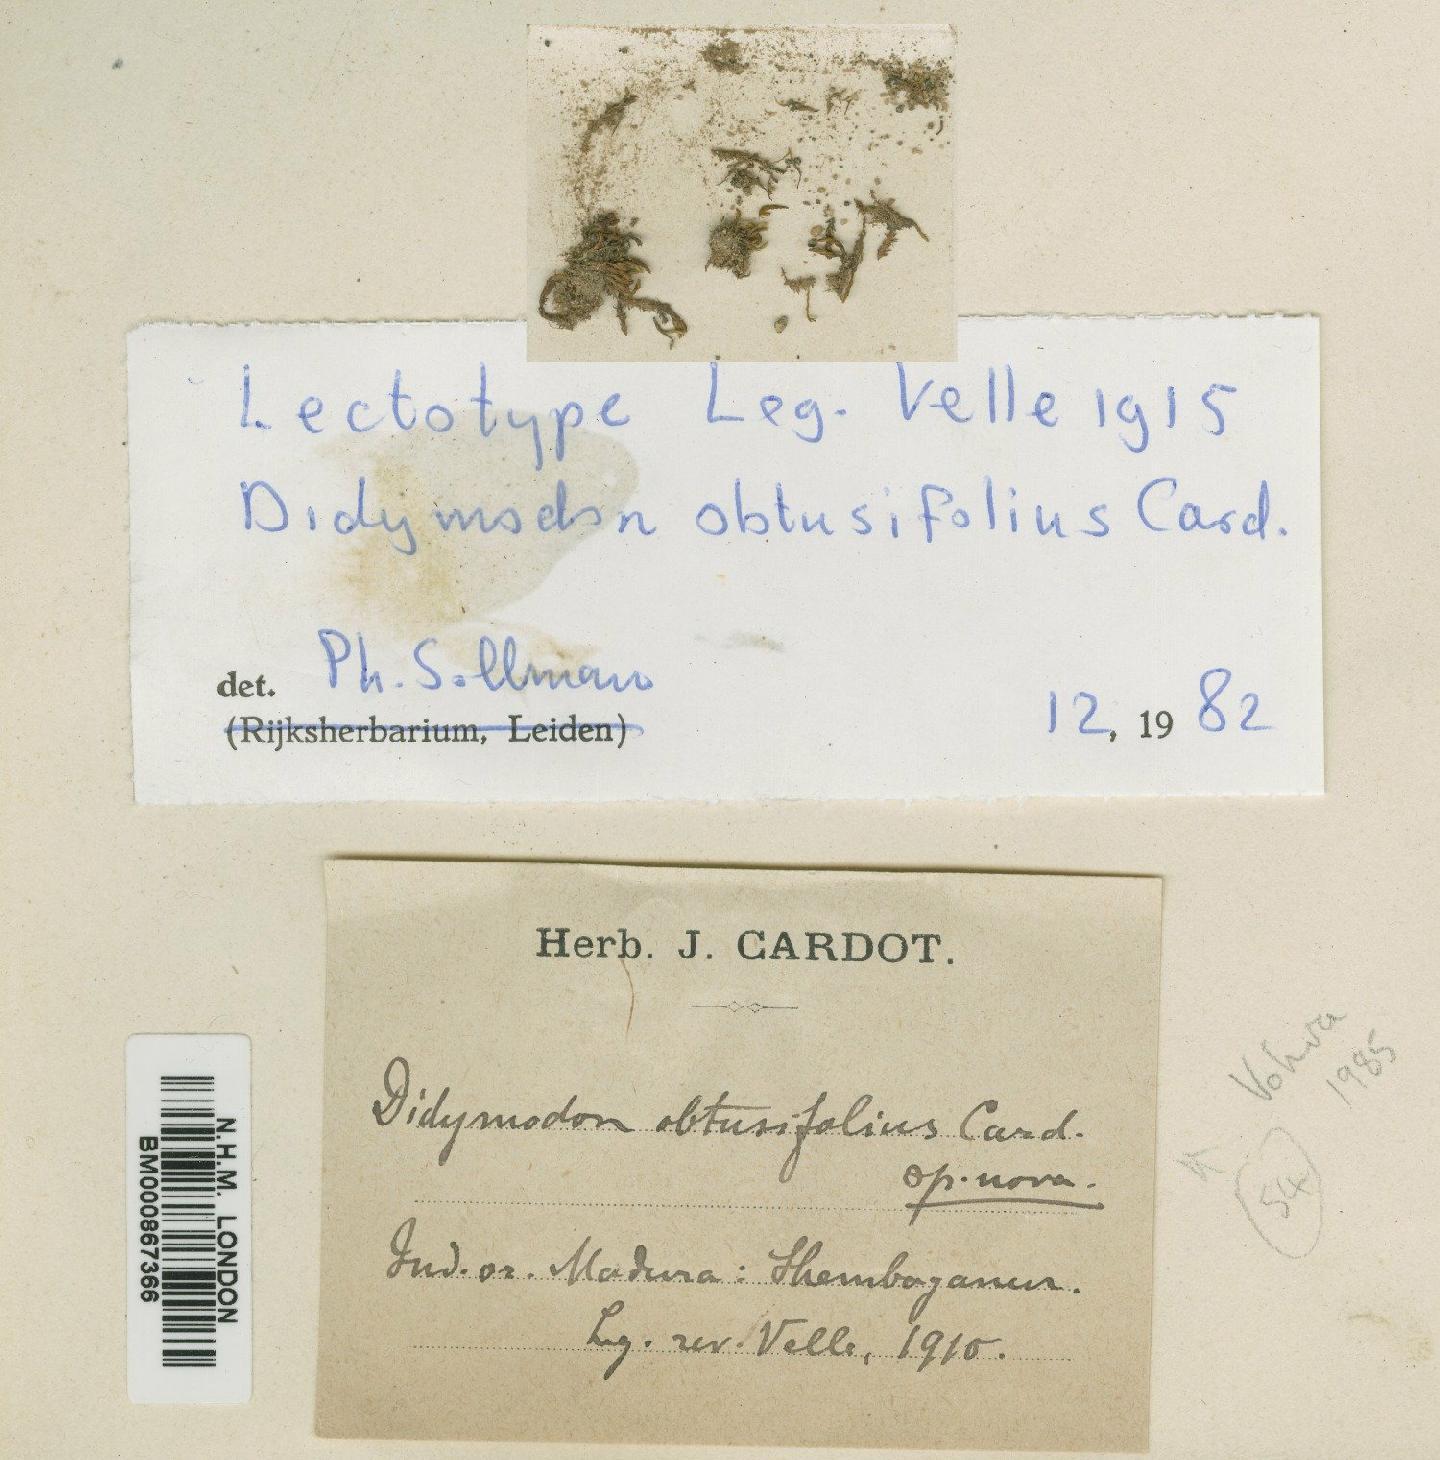 Lectotype Leg. Velle 1915
Didymodon obtusifolius Card.
det. Ph. Sollman
(Rijksherbarium, Leiden)
12, 19 82
Herb. J. CARDOT.
Didymodon obtusifolius Card.
sp. nova.
Ind. or. Madura: Shembaganur.
Leg. rev. Velle, 1910.
N.H.M. LONDON
BM000867366
Vohra
1985
54